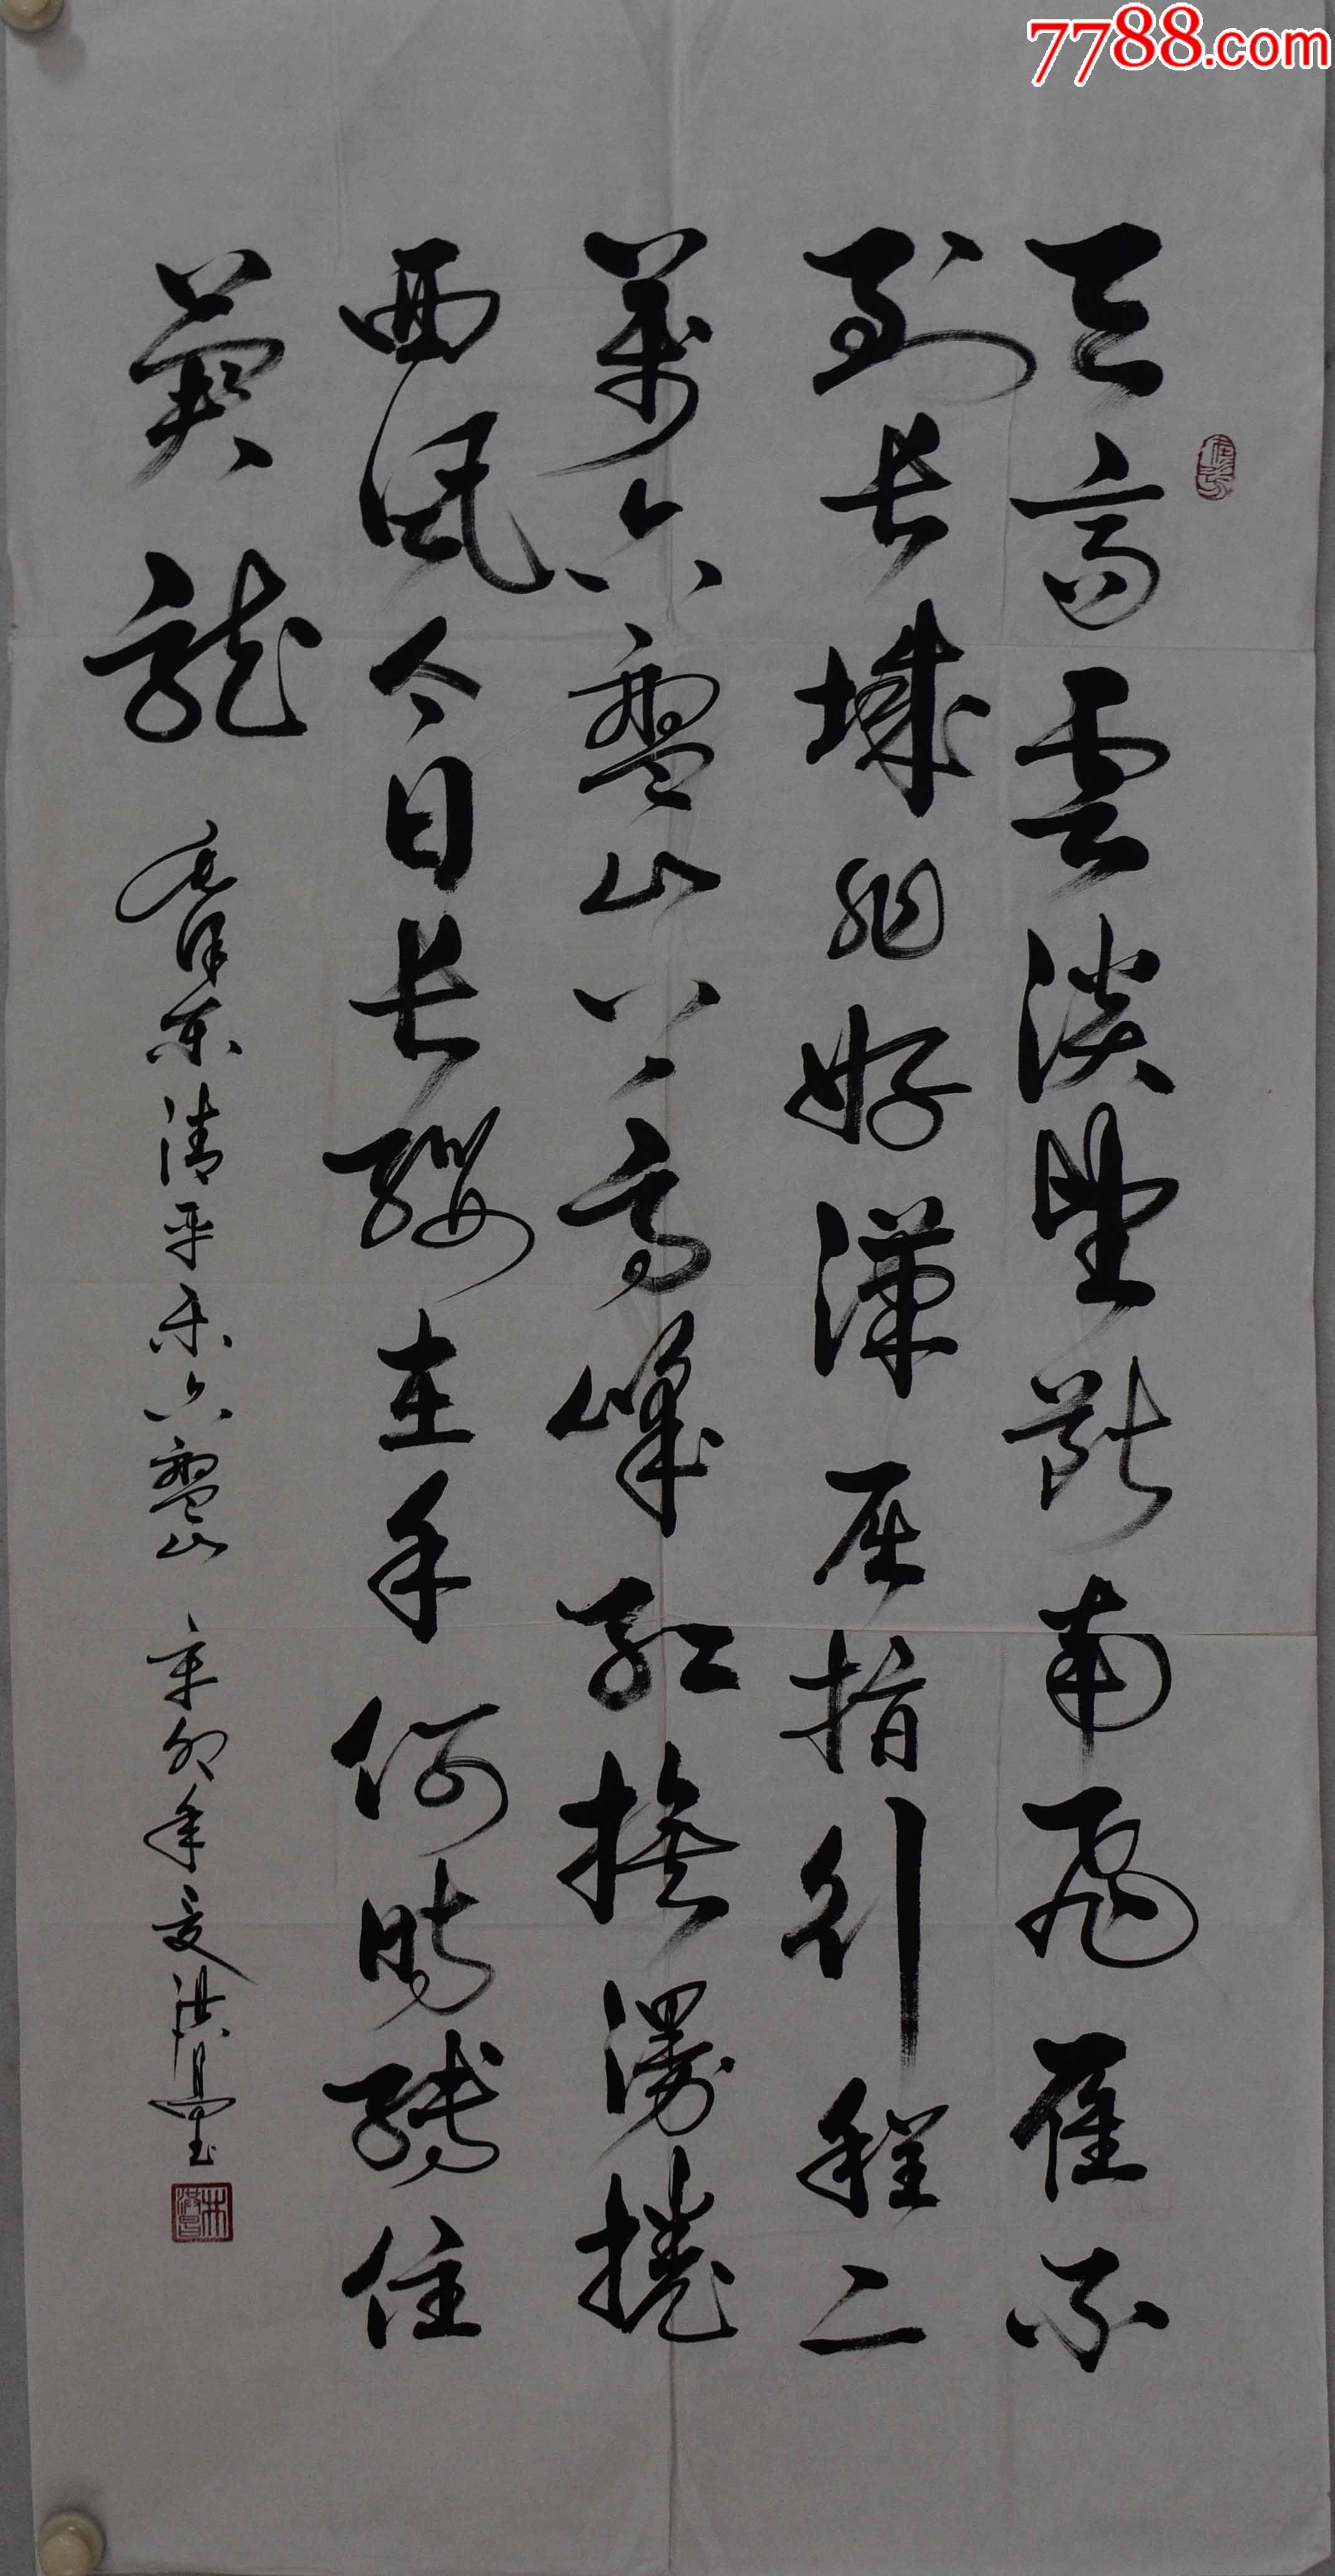 7788.com
天高雲淡望断南飛雁不
到长城非好漢屈指行程二
萬六盤山上高峰紅旗漫捲
西風今日长纓在手何时縛住
蒼龍
毛澤東清平乐六盤山 辛卯年夏洪昌書